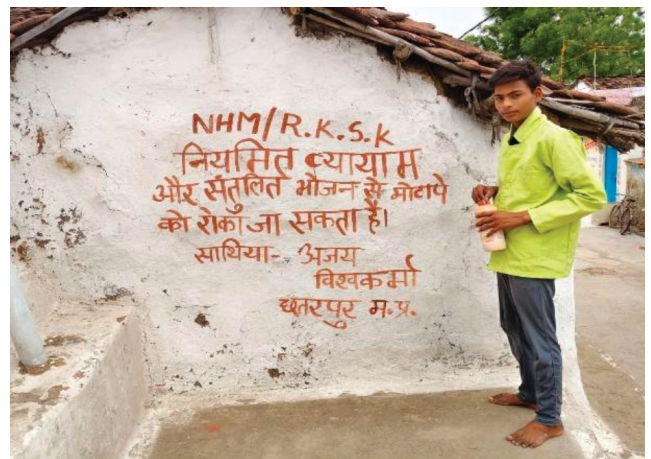 NHM/R.K.S.K
नियमित व्यायाम
और संतुलित भोजन से मोटापे
को रोका जा सकता है।
साथिया- अजय
विश्वकर्मा
छतरपुर म.प्र.